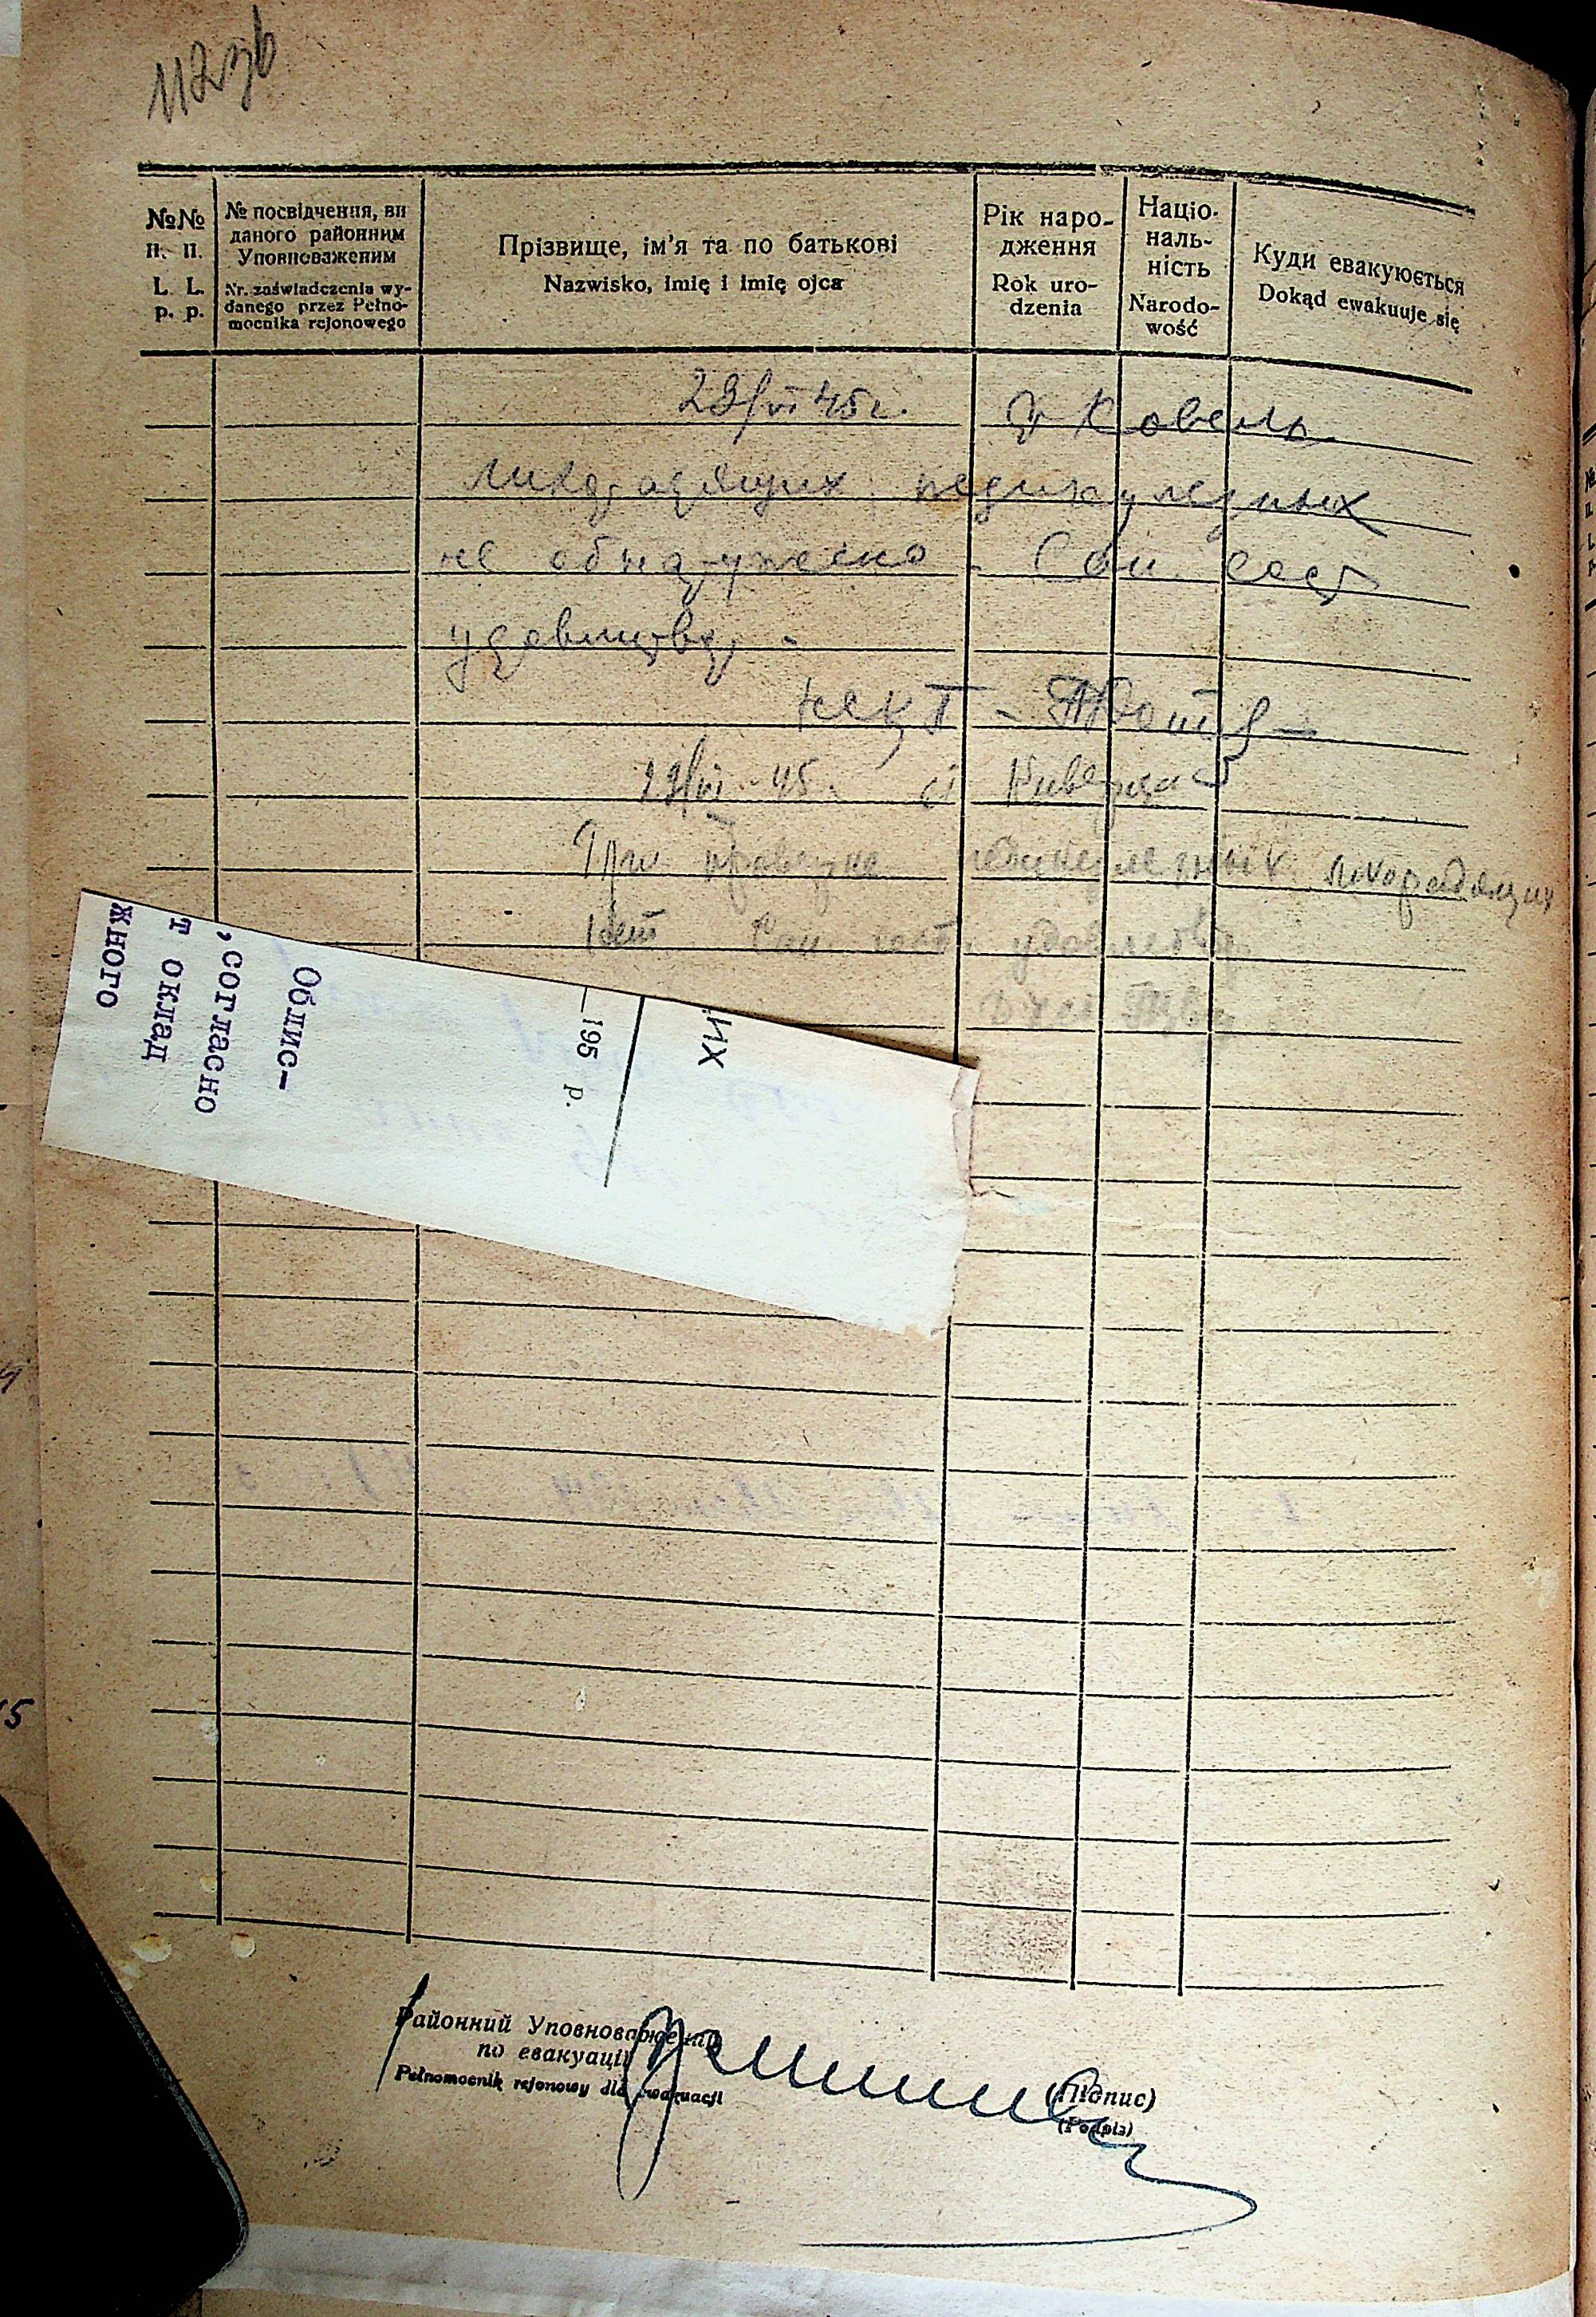 112зв
№№
п. п.
L. L.
p. p.
№ посвідчення, ви
даного районним
Уповноваженим
Nr. zaświadczenia wy-
danego przez Pełno-
mocnika rejonowego
Прізвище, ім'я та по батькові
Nazwisko, imię i imię ojca
Рік наро-
дження
Rok uro-
dzenia
Націо-
наль-
ність
Narodo-
wość
Куди евакуюється
Dokąd ewakuuje się
29/VI 45г. Ковель
лихорадящих педикулезных
не обнаружено. Сан. сост
удовлетвор. -
29/VI - 45. ст Киверцы
При проверке педикулезных лихорадящих
нет Сан. сост. удовлетвор.
Облис-
, согласно
т оклад
жного
195 р.
их
Районний Уповноважений
по евакуації
Pełnomocnik rejonowy dla ewakuacji
(Підпис)
(Podpis)